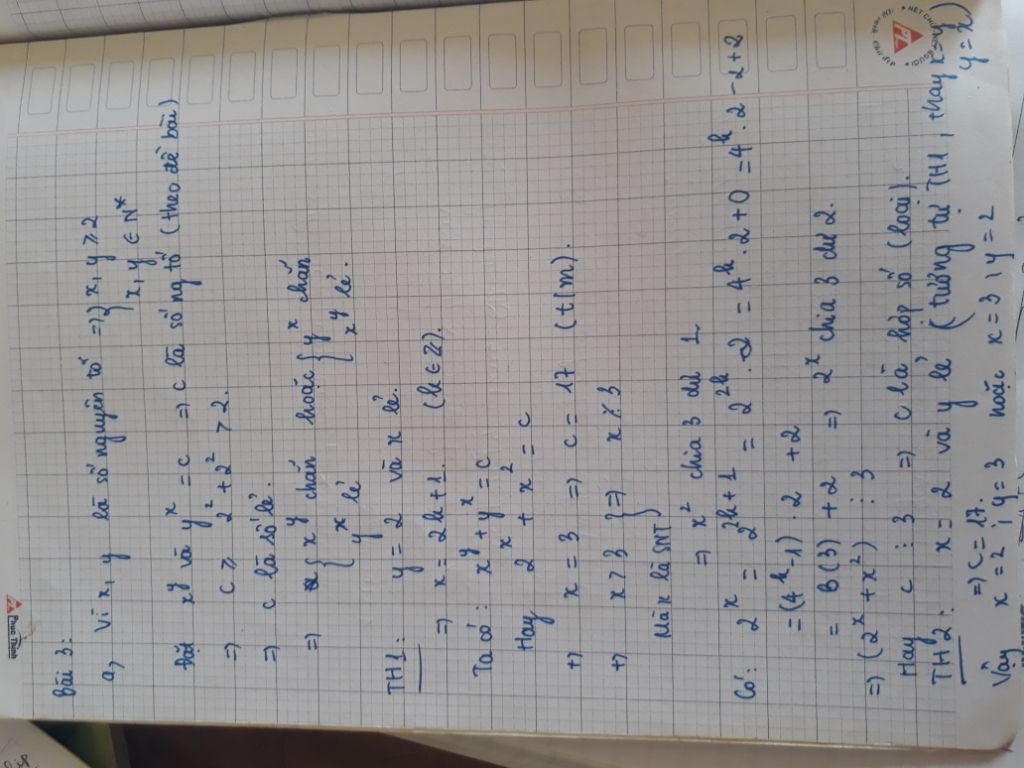 Phúc Thịnh
Bài 3:
a, Vì x, y là số nguyên tố => { x, y ⩾ 2
x, y ∈ N*
Đặt x^y và y^x = c => c là số ng tố (theo đề bài)
=> c ⩾ 2² + 2² > 2.
=> c là số lẻ.
=> { x^y chẵn hoặc { y^x chẵn
{ y^x lẻ { x^y lẻ.
TH1: y = 2 và x lẻ.
=> x = 2k+1. (k ∈ Z).
Ta có: x^y + y^x = c
Hay 2^x + x² = c
+) x = 3 => c = 17 (t/m).
+) x > 3 } => x ⋮̸ 3
Mà x là SNT
=> x² chia 3 dư 1
Có: 2^x = 2^(2k+1) = 2^(2k) . 2 = 4^k . 2 + 0 = 4^k . 2 - 2 + 2
= (4^k - 1) . 2 + 2
= B(3) + 2 => 2^x chia 3 dư 2.
=> (2^x + x²) ⋮ 3
Hay c ⋮ 3 => c là hợp số (loại).
TH2: x = 2 và y lẻ (tương tự TH1, thay x = y)
y = 2
=> c = 17.
Vậy x = 2 ; y = 3 hoặc x = 3 ; y = 2